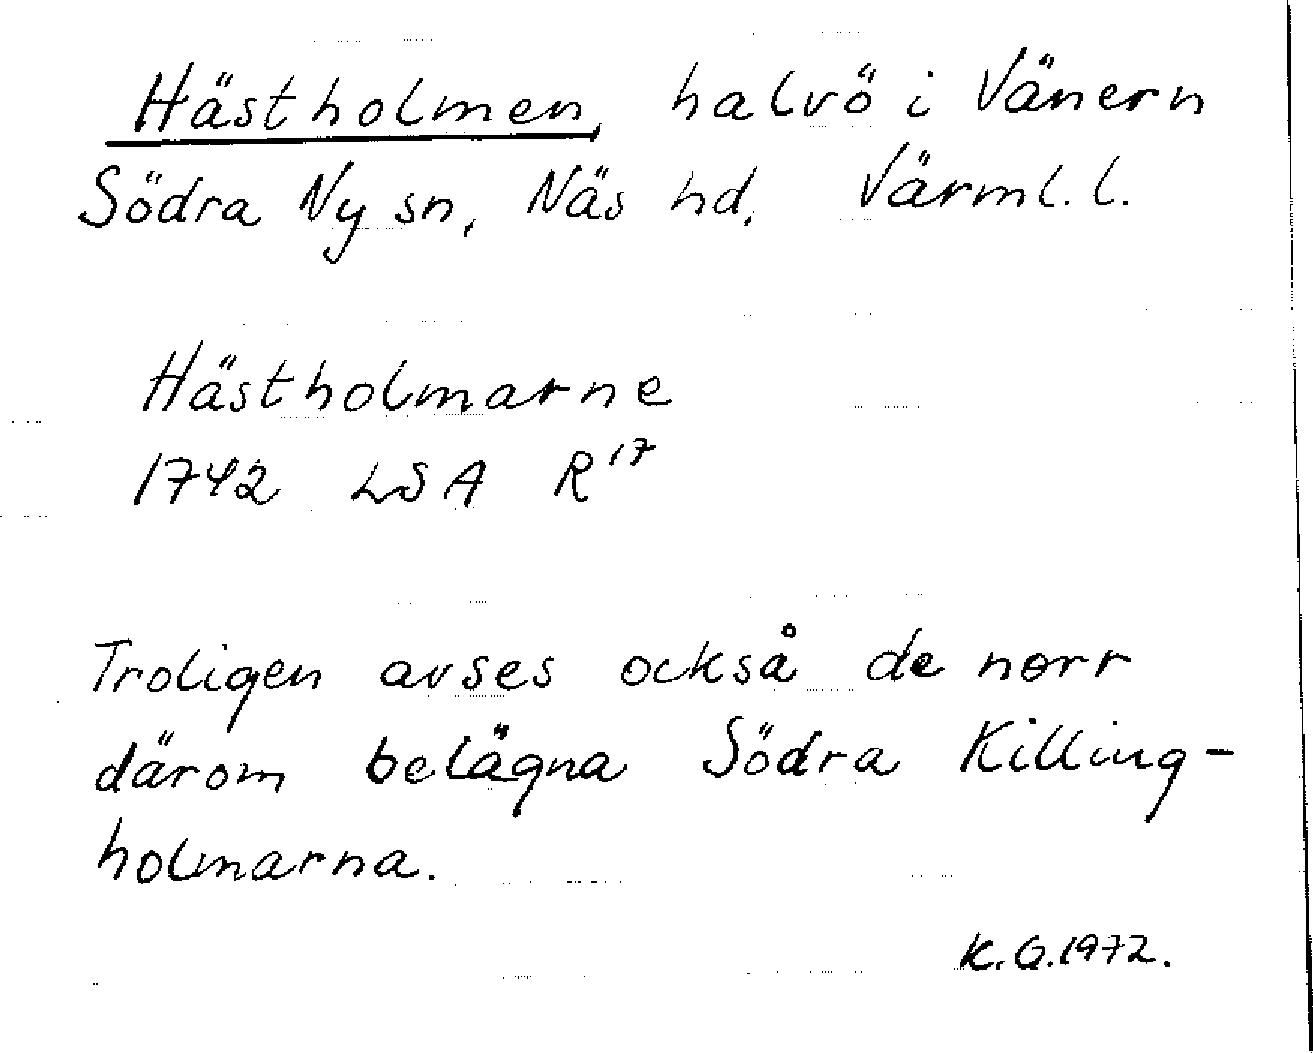 Hästholmen, halvö i Vänern
Södra Ny sn, Näs hd, Värml. l.
Hästholmarne
1742 LSA R¹⁷
Troligen avses också de norr
därom belägna Södra Killing-
holmarna.
K.G.1972.